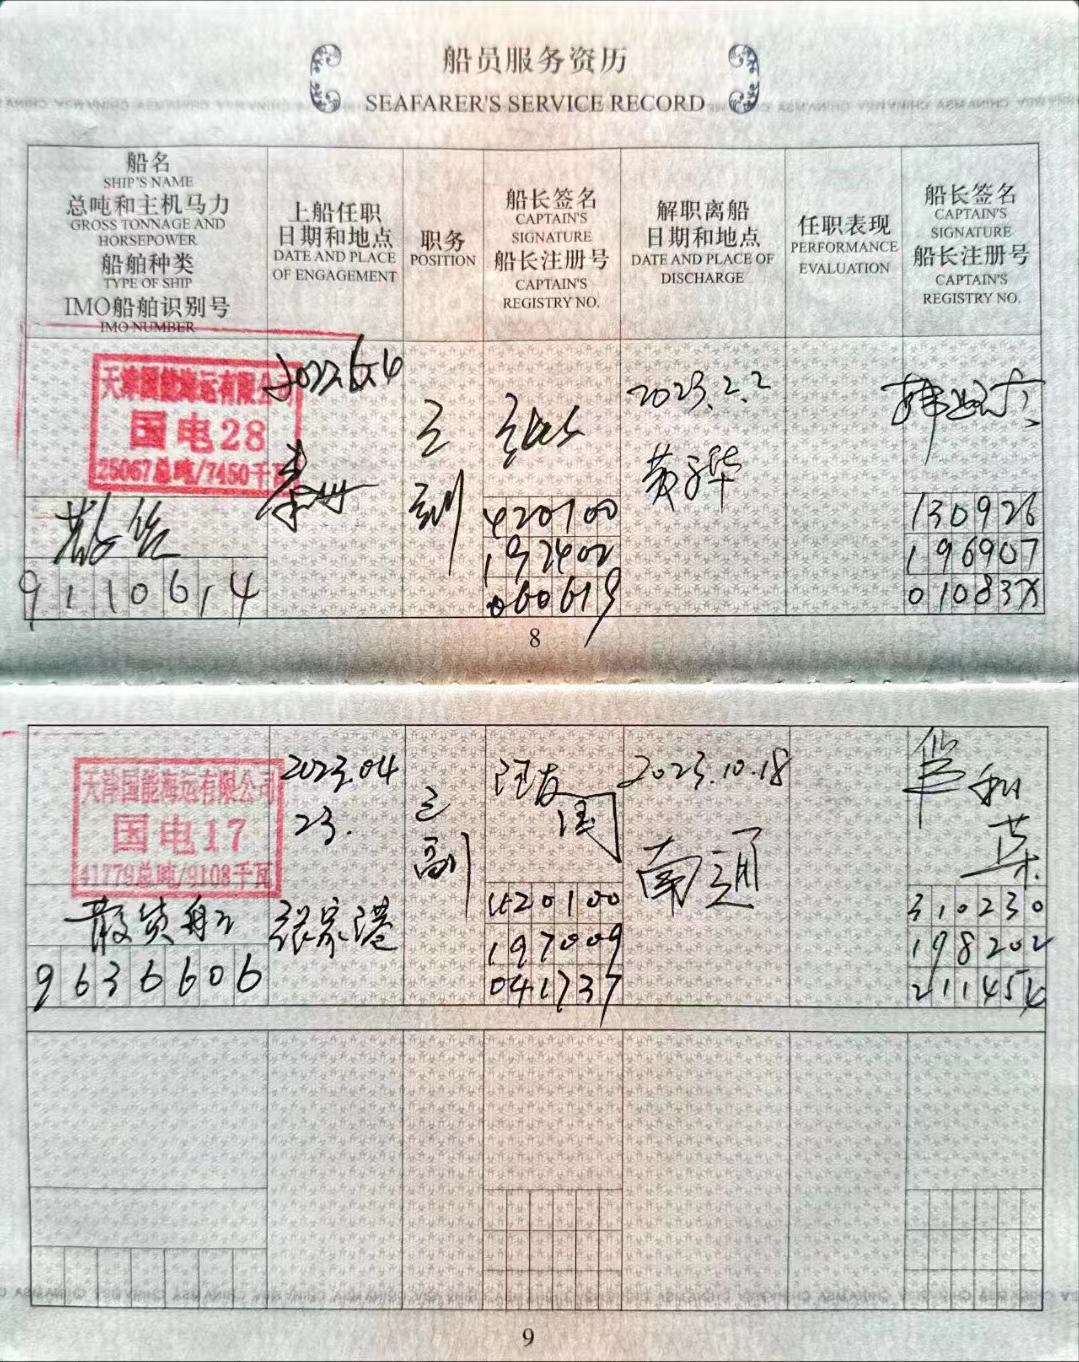 船员服务资历
SEAFARER'S SERVICE RECORD
船名
SHIP'S NAME
总吨和主机马力
GROSS TONNAGE AND
HORSEPOWER
船舶种类
TYPE OF SHIP
IMO船舶识别号
IMO NUMBER
上船任职
日期和地点
DATE AND PLACE
OF ENGAGEMENT
职务
POSITION
船长签名
CAPTAIN'S
SIGNATURE
船长注册号
CAPTAIN'S
REGISTRY NO.
解职离船
日期和地点
DATE AND PLACE OF
DISCHARGE
任职表现
PERFORMANCE
EVALUATION
船长签名
CAPTAIN'S
SIGNATURE
船长注册号
CAPTAIN'S
REGISTRY NO.
天津国能海运有限公司
国电28
25067总吨/7450千瓦
9110614
2022.6.4
420100
192402
060619
2023.2.2
黄骅
130926
196907
01083X
8
天津国能海运有限公司
国电17
41779总吨/9108千瓦
散货船
9636606
2023.04
23.
张家港
三
副
420100
197009
041737
2023.10.18
南通
310230
198202
211454
9